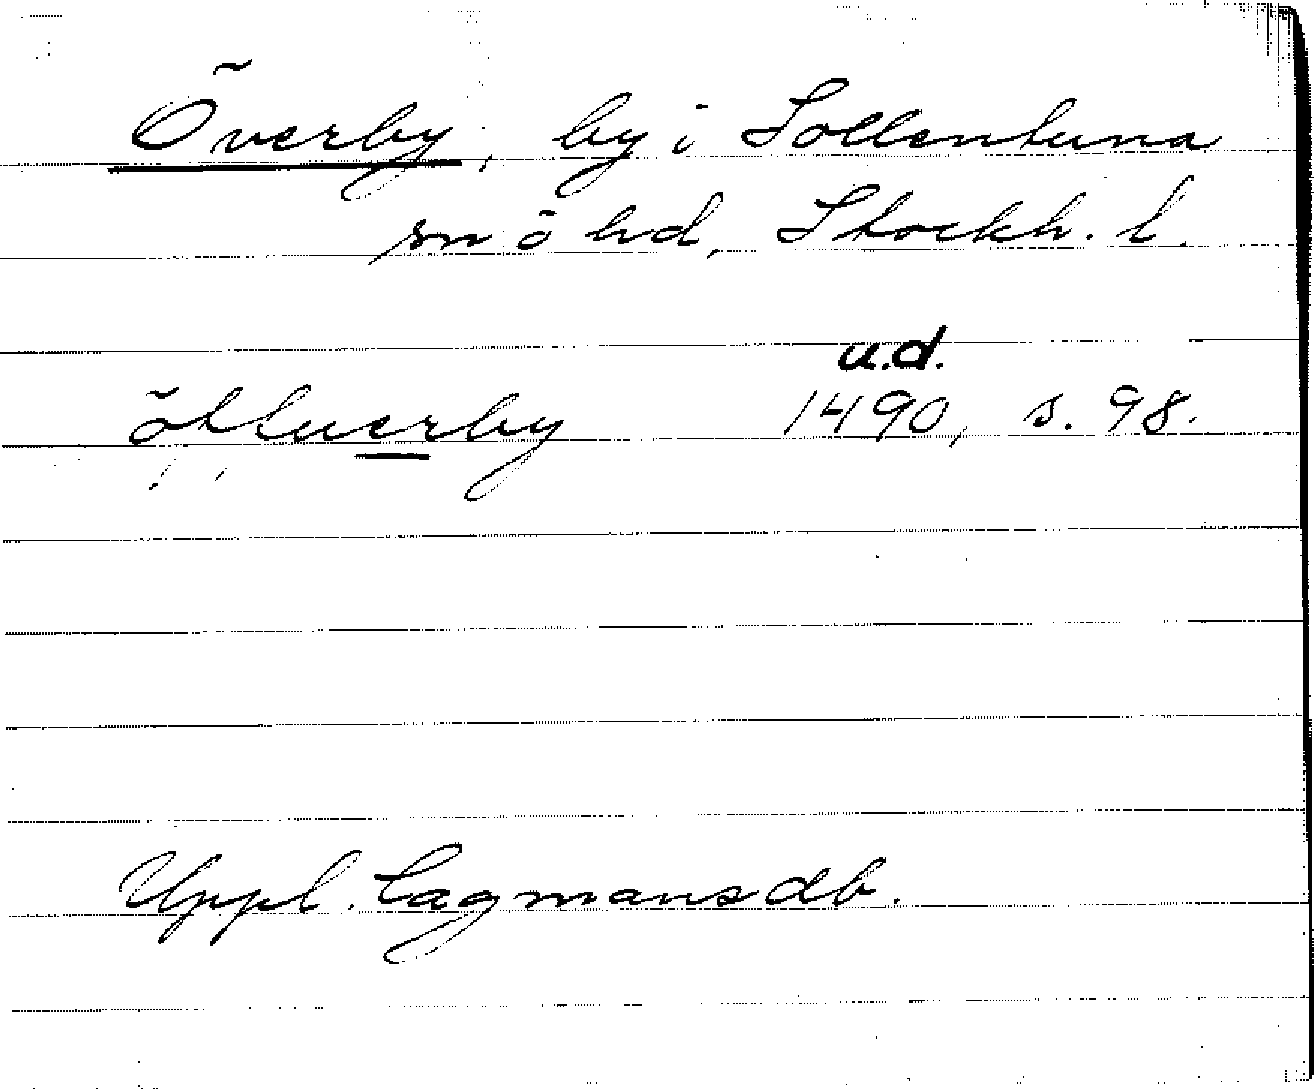 Överby, by i Sollentuna
sn o hd, Stockh. l.
u.d.
öffuerby 1490, s. 98.
Uppl. Lagmansdb.